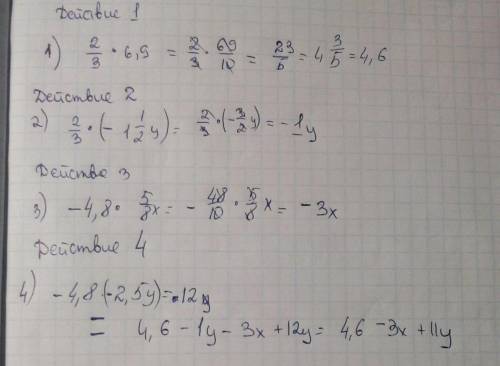 Действие 1
1) 2/3 · 6,9 = 2/3 · 69/10 = 23/5 = 4 3/5 = 4,6
Действие 2
2) 2/3 · (- 1 1/2 y) = 2/3 · (- 3/2 y) = - 1y
Действе 3
3) - 4,8 · 5/8 x = - 48/10 · 5/8 x = - 3x
Действие 4
4) - 4,8 · (-2,5y) = 12y
= 4,6 - 1y - 3x + 12y = 4,6 - 3x + 11y